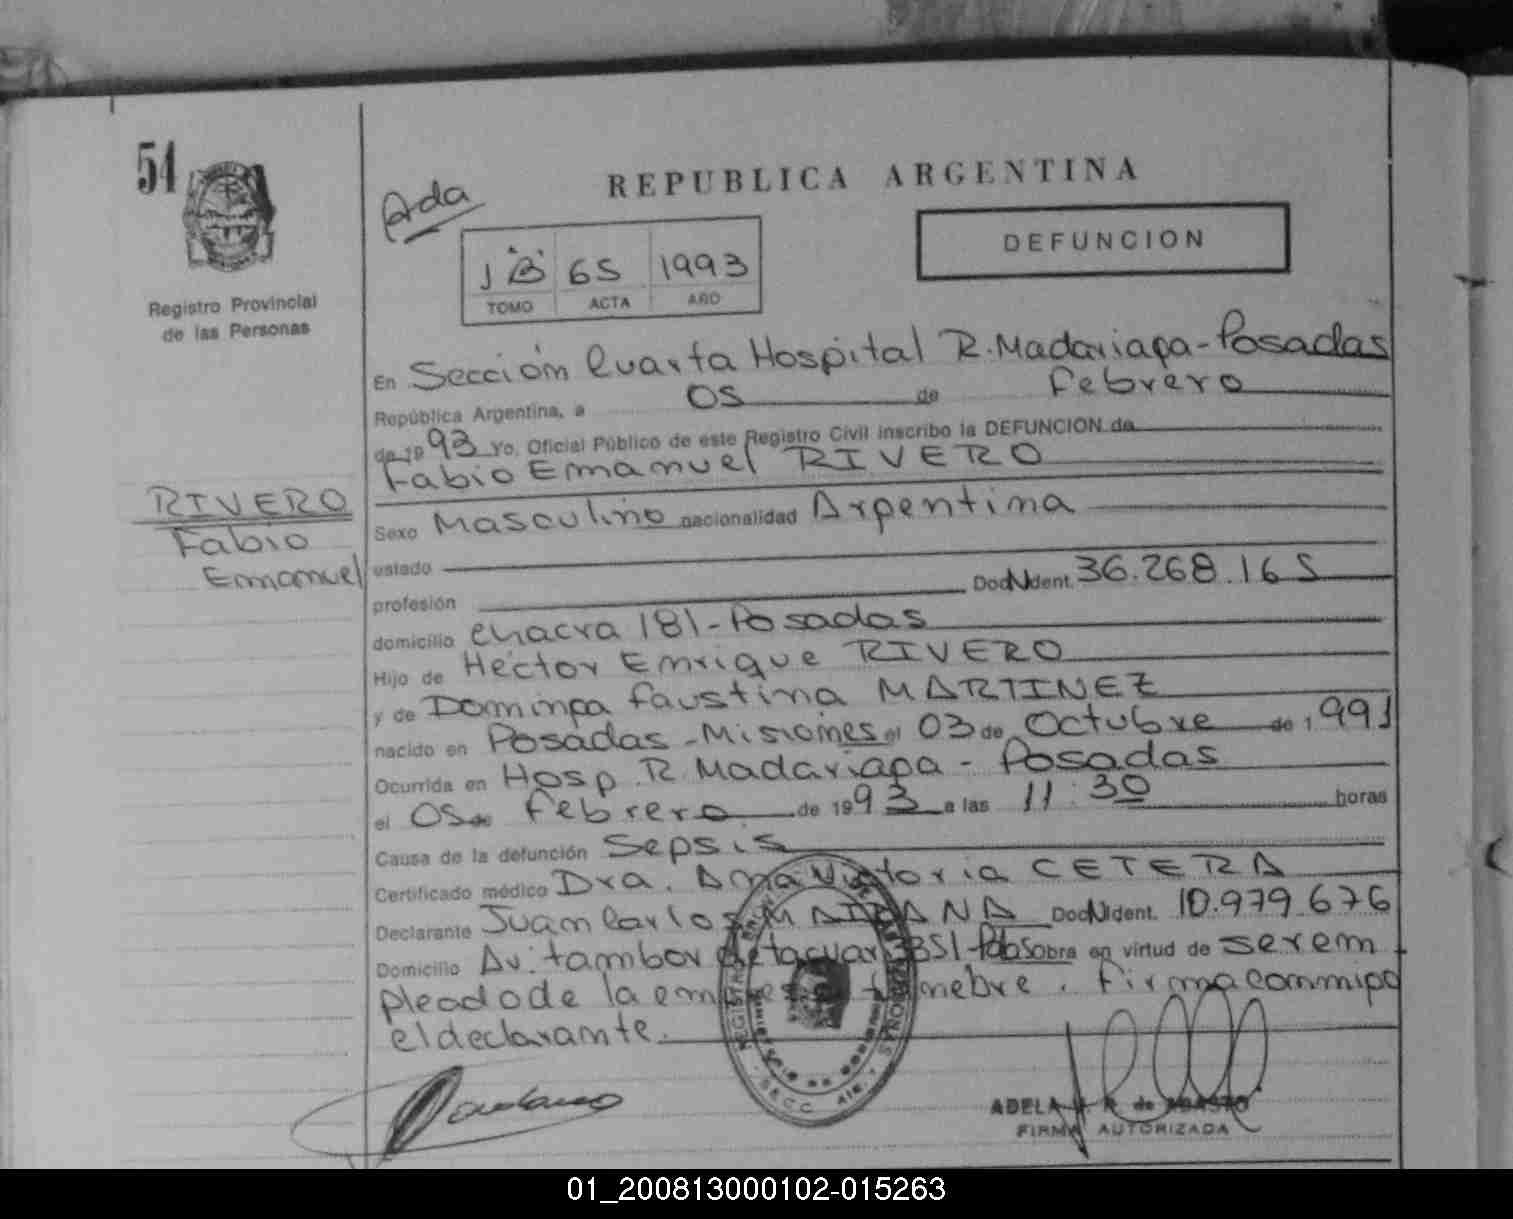 54
REPUBLICA ARGENTINA
Ada
DEFUNCION
1 "B" 65 1993
TOMO ACTA AÑO
Registro Provincial
de las Personas
En Sección Cuarta Hospital R. Madariaga - Posadas
República Argentina, a 05 de Febrero
de 1993 Yo, Oficial Público de este Registro Civil inscribo la DEFUNCION de
Fabio Emanuel RIVERO
RIVERO
Fabio
Emanuel
Sexo Masculino nacionalidad Argentina
estado
profesión Doc N Ident. 36.268.165
domicilio chacra 181 - Posadas
Hijo de Héctor Enrique RIVERO
y de Dominga Faustina MARTINEZ
nacido en Posadas - Misiones el 03 de Octubre de 1991
Ocurrida en Hosp. R. Madariaga - Posadas
el 05 de Febrero de 1993 a las 11:30 horas
Causa de la defunción Sepsis
Certificado médico Dra. Ana Victoria CETERA
Declarante Juan Carlos MAIDANA Doc N Ident. 10.979.676
Domicilio Av. tambor de tacuari 3351 - Pdas obra en virtud de ser em
pleado de la empresa fúnebre. Firma conmigo
el declarante.
ADELA
FIRMA AUTORIZADA
01_200813000102-015263